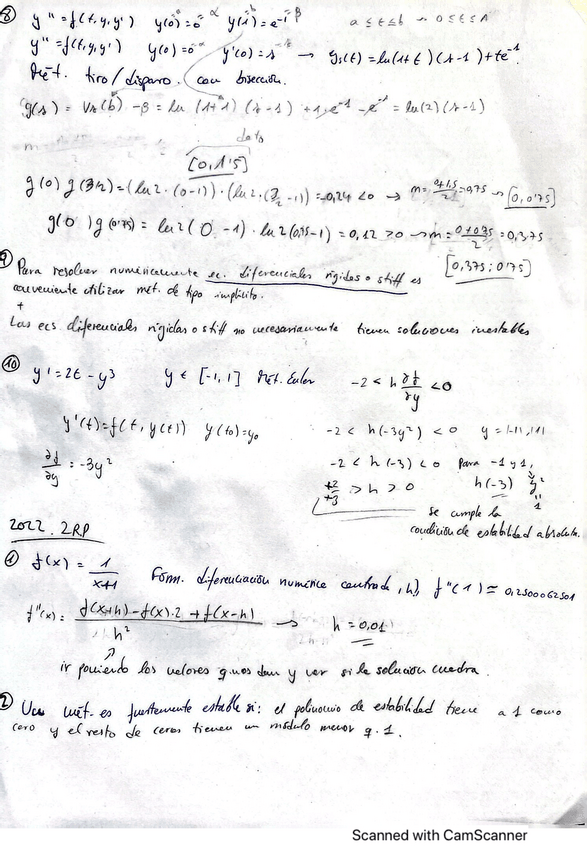 ⑧ y'' = f(t, y, y') y(0) = 0 = α y(1) = e⁻¹ = β a ≤ t ≤ b → 0 ≤ t ≤ 1
y'' = f(t, y, y') y(0) = 0 = α y'(0) = s → ys(t) = ln(1+t) (s-1) + te⁻ᵗ.
Mét. tiro/disparo. con bisección.
g(s) = ys(b) - β = ln (1+1) (s-1) + 1·e⁻¹ - e⁻¹ = ln(2) (s-1)
dato
[0, 1'5]
g(0) g(3/2) = (ln2 · (0-1)) · (ln2 · (3/2 - 1)) = -0,24 < 0 → m = (0+1,5)/2 = 0,75 → [0, 0'75]
g(0) g(0'75) = ln2 (0-1) · ln2 (0,75-1) = 0,12 > 0 → m = (0+0,75)/2 = 0,375
[0,375; 0'75]
⑨ Para resolver numéricamente ec. diferenciales rígidas o stiff es
conveniente utilizar mét. de tipo implícito.
+
Las ecs diferenciales rígidas o stiff no necesariamente tienen soluciones inestables
⑩ y' = 2t - y³ y ∈ [-1, 1] Mét. Euler -2 < h ∂f/∂y < 0
y'(t) = f(t, y(t)) y(t0) = y0 -2 < h(-3y²) < 0 y = |-1|, |1|
∂f/∂y = -3y² -2 < h (-3) < 0 para -1 y 1,
+2/+3 > h > 0 h(-3) y² = 1
se cumple la
condición de estabilidad absoluta.
2022. 2RP
① f(x) = 1/(x+1) Fórm. diferenciación numérica centrada, h, f''(1) ≃ 0,2500062501
f''(x) = (f(x+h) - f(x)·2 + f(x-h))/h² → h = 0,01
ir poniendo los valores q nos dan y ver si la solución cuadra.
② Un mét. es fuertemente estable si: el polinomio de estabilidad tiene a 1 como
cero y el resto de ceros tienen un módulo menor q. 1.
Scanned with CamScanner